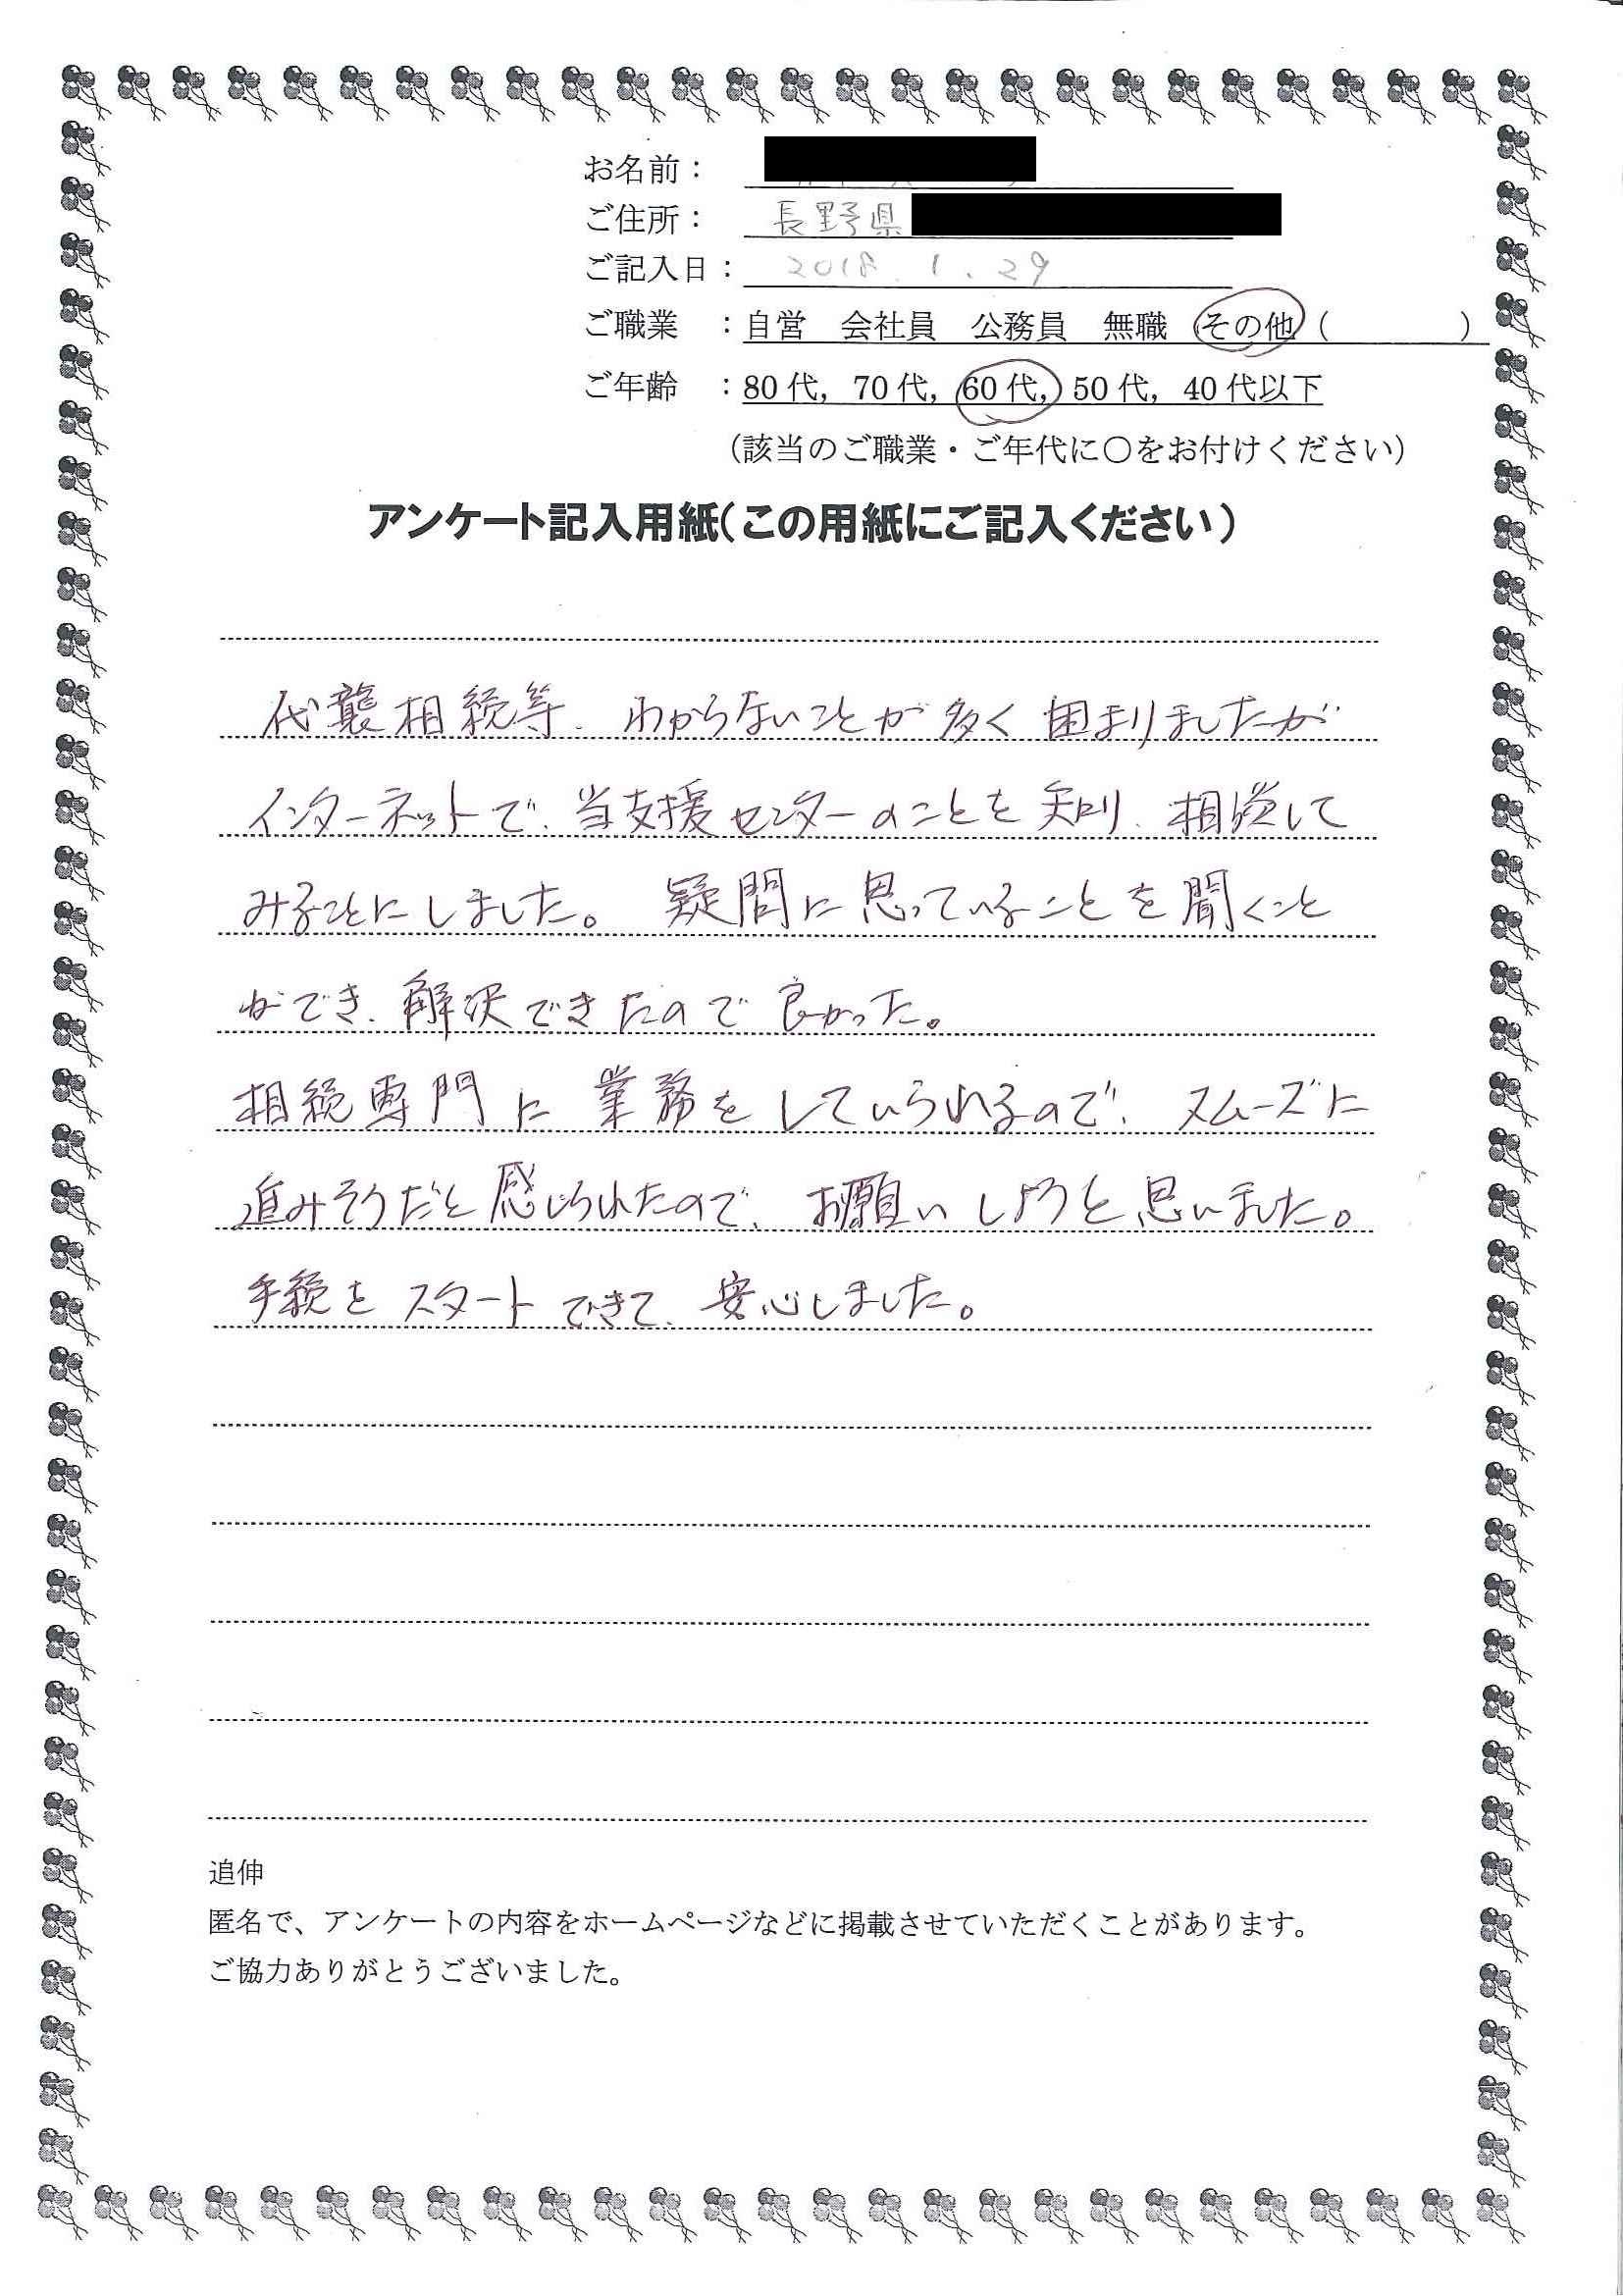 お名前：
ご住所： 長野県
ご記入日： 2018.1.29
ご職業 ：自営 会社員 公務員 無職 その他（ ）
ご年齢 ：80代，70代，60代，50代，40代以下
（該当のご職業・ご年代に○をお付けください）
アンケート記入用紙（この用紙にご記入ください）
代襲相続等、わからないことが多く困まりましたが
インターネットで、当支援センターのことを知り、相談して
みることにしました。疑問に思っていることを聞くこと
ができ、解決できたので良かった。
相続専門に業務をしていられるので、スムーズに
進みそうだと感じられたので、お願いしようと思いました。
手続をスタートできて、安心しました。
追伸
匿名で、アンケートの内容をホームページなどに掲載させていただくことがあります。
ご協力ありがとうございました。